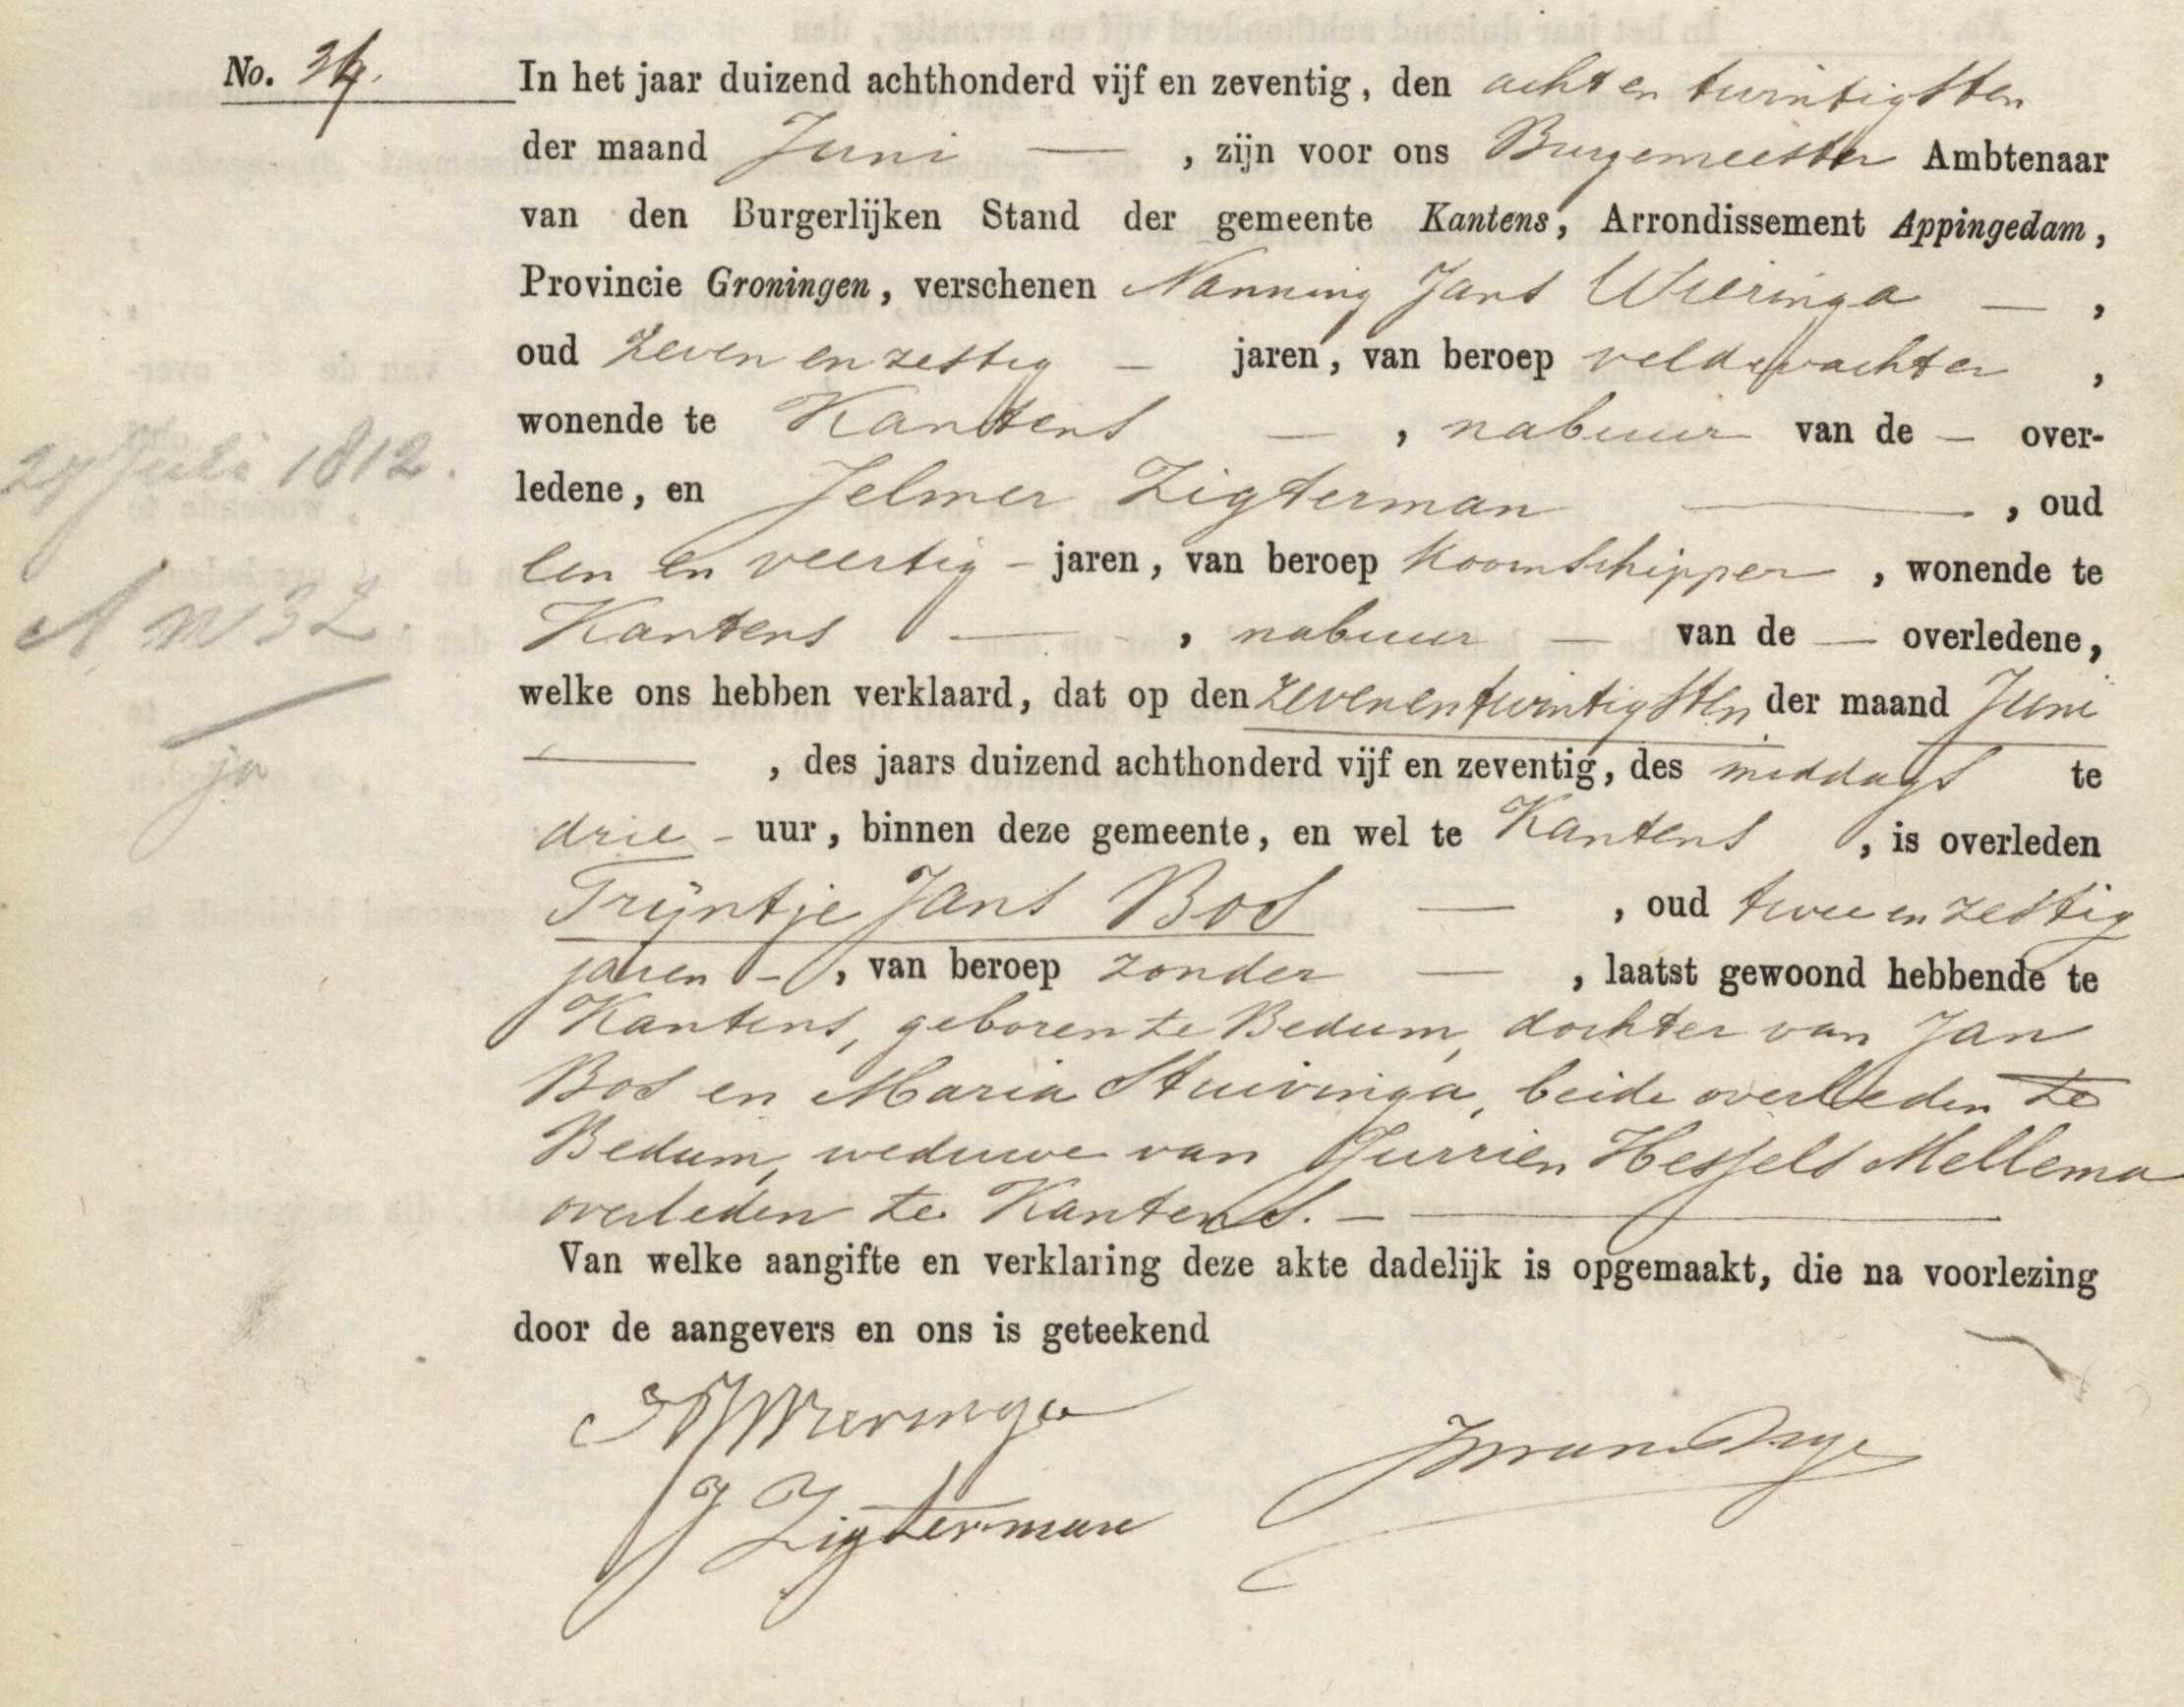 No. 34. In het jaar duizend achthonderd vijf en zeventig, den acht en twintigsten
der maand Juni — , zijn voor ons Burgemeester Ambtenaar
van den Burgerlijken Stand der gemeente Kantens, Arrondissement Appingedam,
Provincie Groningen, verschenen Nanning Jans Wieringa — ,
oud zeven en zestig — jaren, van beroep veldwachter ,
wonende te Kantens — , nabuur van de — over-
29 Juli 1812.
ledene, en Jelmer Zigterman — , oud
een en veertig — jaren, van beroep koornschipper , wonende te
A no 32.
Kantens — , nabuur — van de — overledene,
welke ons hebben verklaard, dat op den zevenentwintigsten der maand Juni
— , des jaars duizend achthonderd vijf en zeventig, des middags te
ja
drie — uur, binnen deze gemeente, en wel te Kantens , is overleden
Trijntje Jans Bos — , oud twee en zestig
jaren — , van beroep zonder — , laatst gewoond hebbende te
Kantens, geboren te Bedum, dochter van Jan
Bos en Maria Stuivinga, beide overleden te
Bedum, weduwe van Jurrien Hessels Mellema
overleden te Kantens. —
Van welke aangifte en verklaring deze akte dadelijk is opgemaakt, die na voorlezing
door de aangevers en ons is geteekend
NJWieringa
J Zigterman